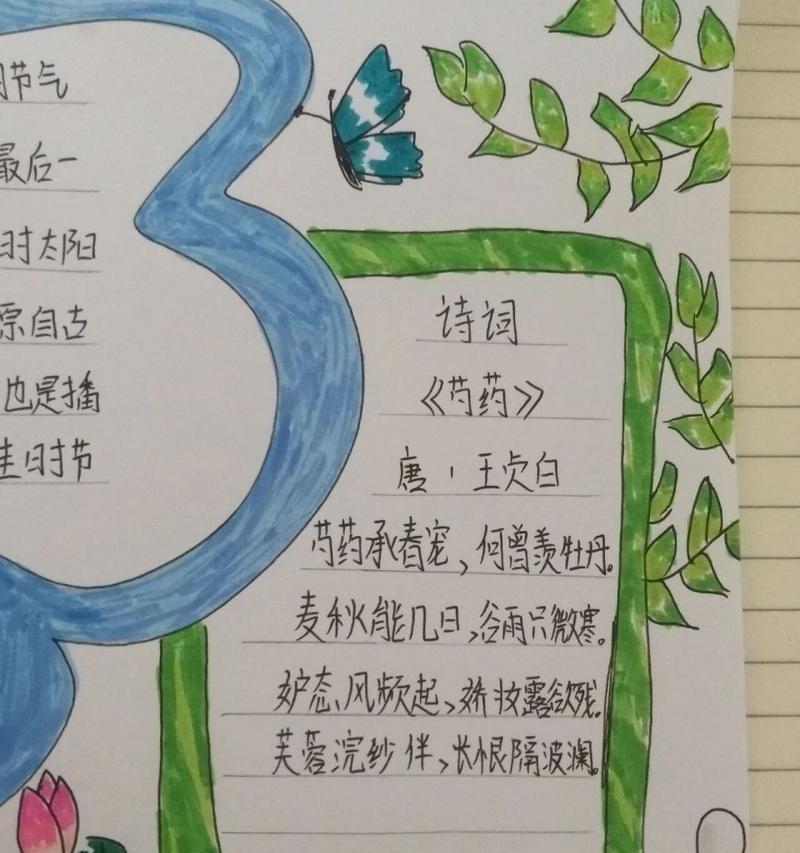 节气
最后一
时太阳
自古
也是播
时节
诗词
《芍药》
唐，王贞白
芍药承春宠，何曾羡牡丹。
麦秋能几日，谷雨只微寒。
妒态、风频起，娇妆露欲残。
芙蓉浣纱伴，长恨隔波澜。